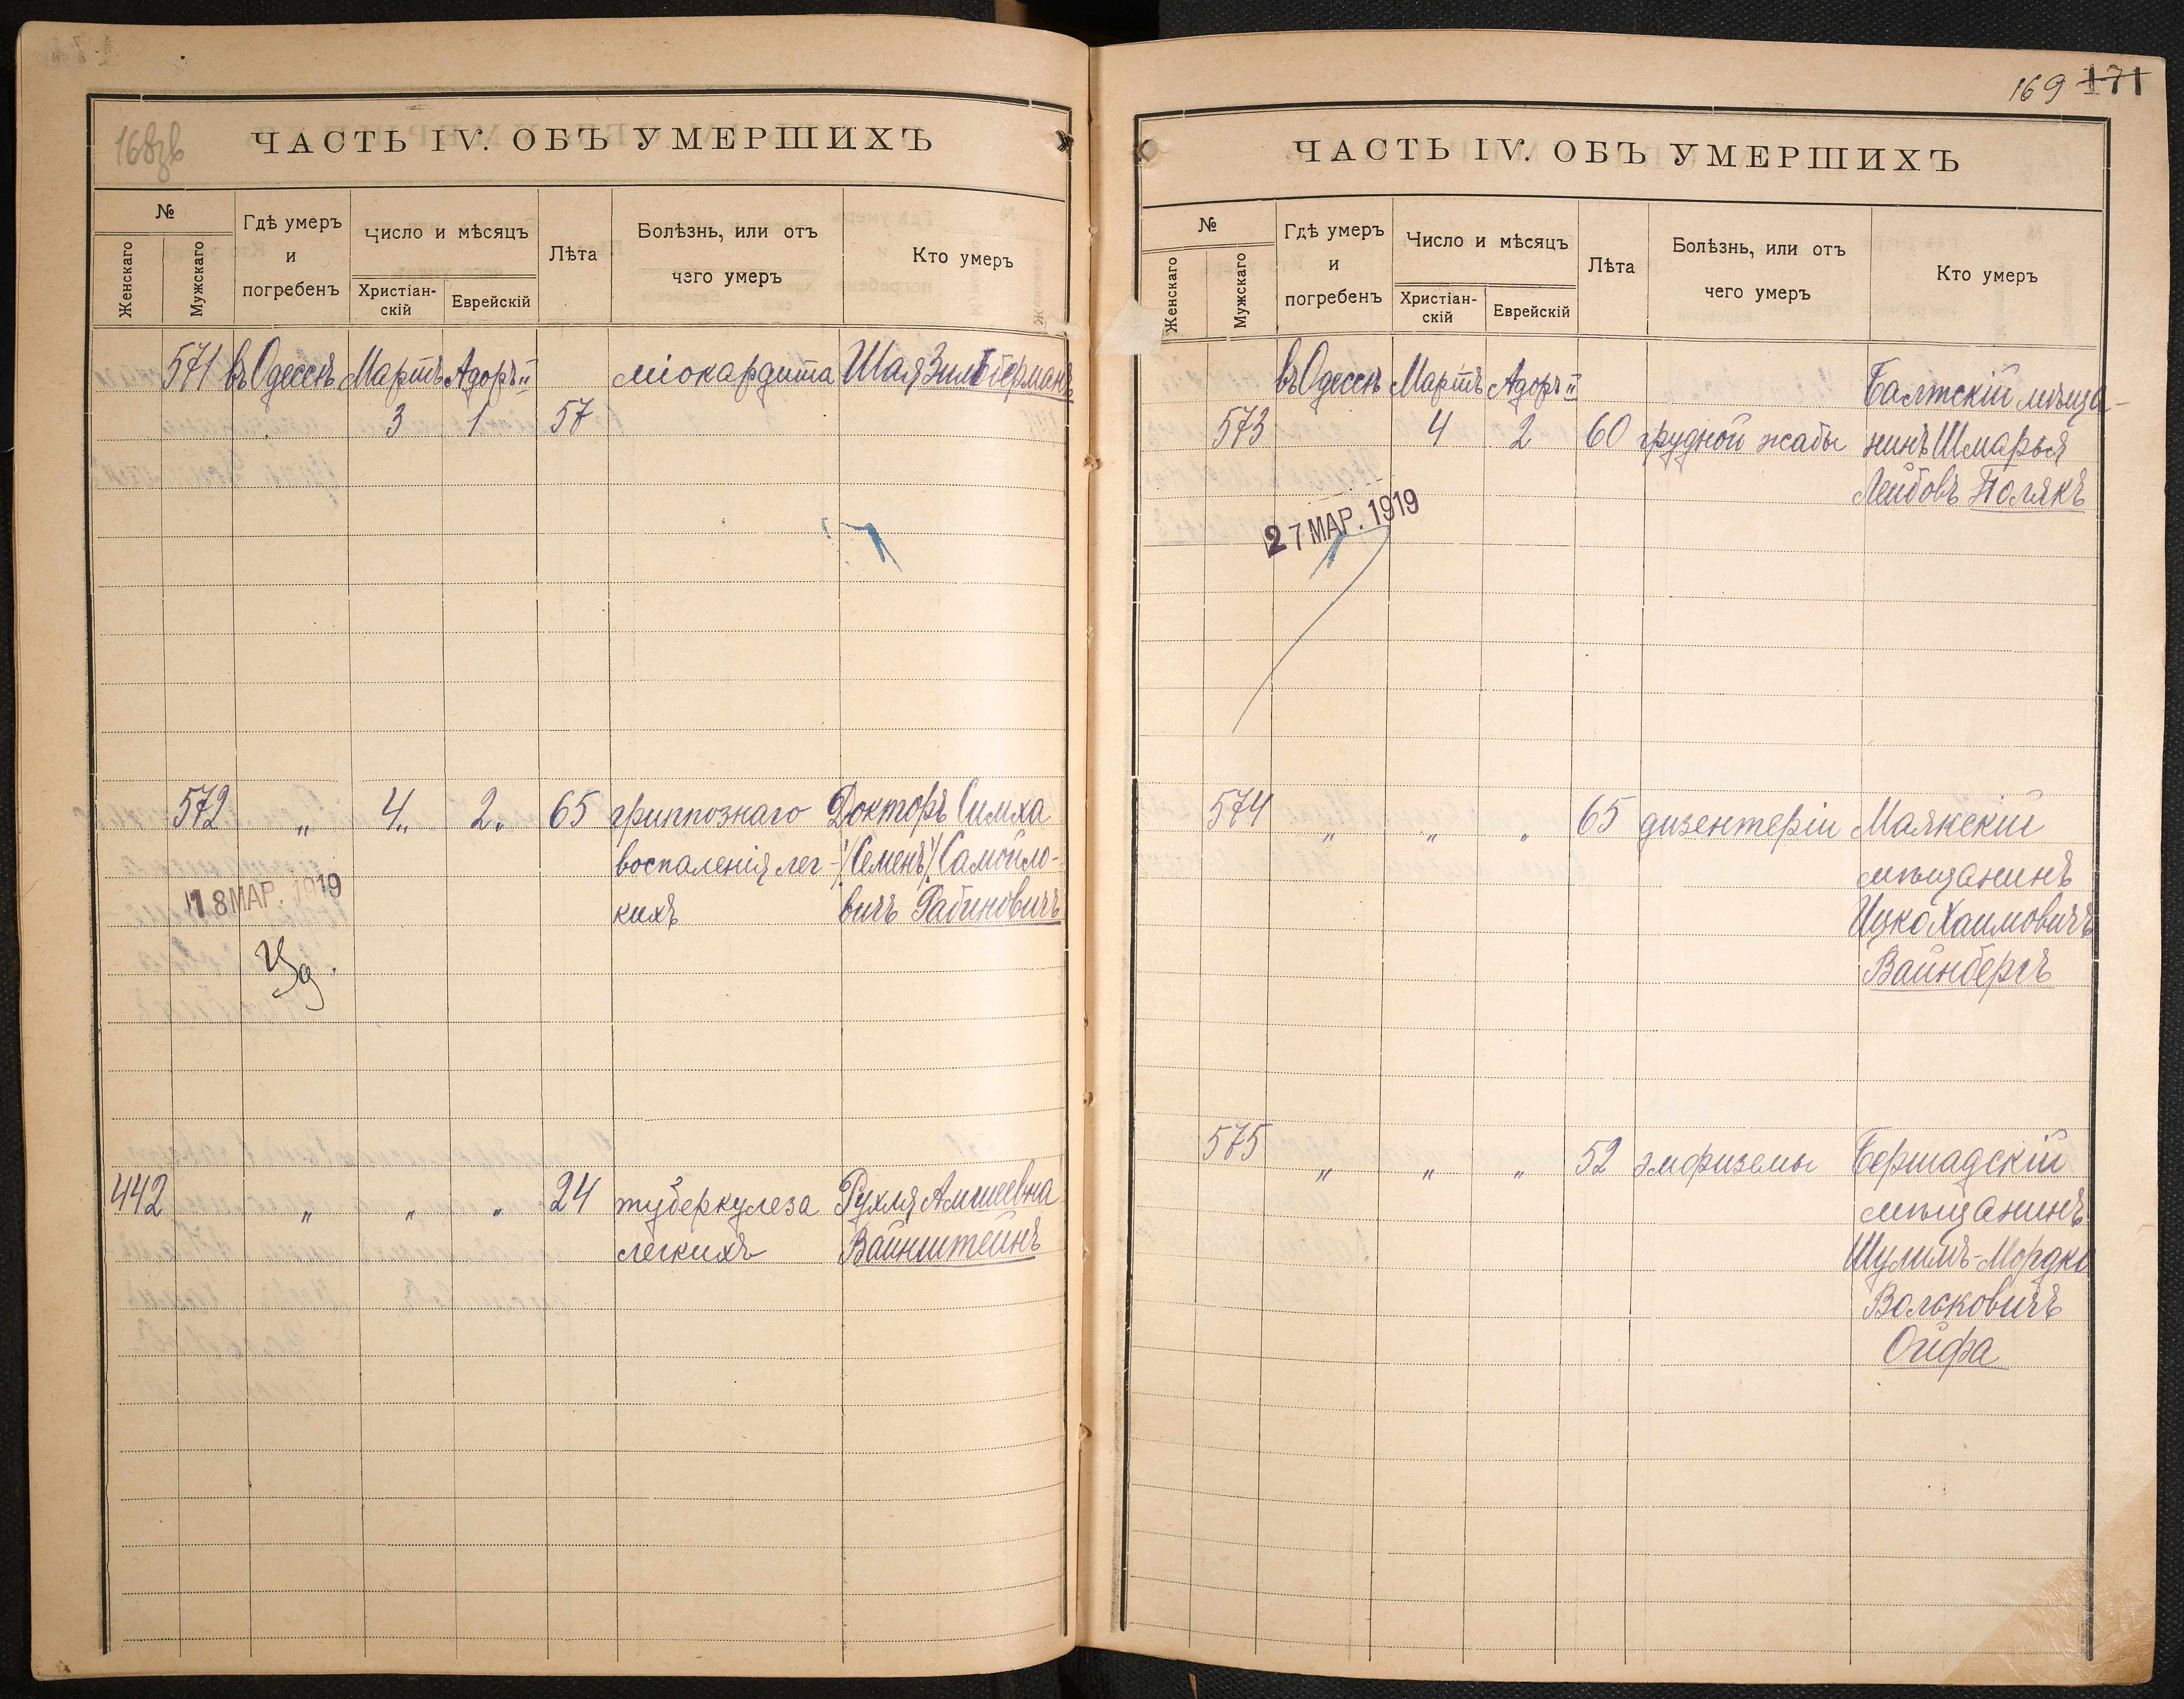 168зв
ЧАСТЬ IV. ОБЪ УМЕРШИХЪ
№
Женскаго
Мужскаго
Гдѣ умеръ
и
погребенъ
Число и мѣсяцъ
Христіан-
скій
Еврейскій
Лѣта
Болѣзнь, или отъ
чего умеръ
Кто умеръ
571 въ Одессѣ Мартъ Адоръ II міокардита Шая Зильберманъ
3 1 57
572 " 4" 2" 65 гриппознаго Докторъ Симха
воспаленія лег- /Семенъ/ Самойло-
18 МАР. 1919
кихъ вичъ Рабиновичъ
442 " " " 24 туберкулеза Рухля Амшеевна
легкихъ Вайнштейнъ
169 171
ЧАСТЬ IV. ОБЪ УМЕРШИХЪ
№
Женскаго
Мужскаго
Гдѣ умеръ
и
погребенъ
Число и мѣсяцъ
Христіан-
скій
Еврейскій
Лѣта
Болѣзнь, или отъ
чего умеръ
Кто умеръ
въ Одессѣ Мартъ Адоръ II Балтскій мѣща-
573 4 2 60 грудной жабы нинъ Шмарья
Лейбовъ Полякъ
27 МАР. 1919
574 " " " 65 дизентеріи Маякскій
мѣщанинъ
Ицко Хаимовичъ
Вайнбергъ
575 " " " 52 эмфиземы Бершадскій
мѣщанинъ
Шулимъ-Мордко
Вольковичъ
Ойфа